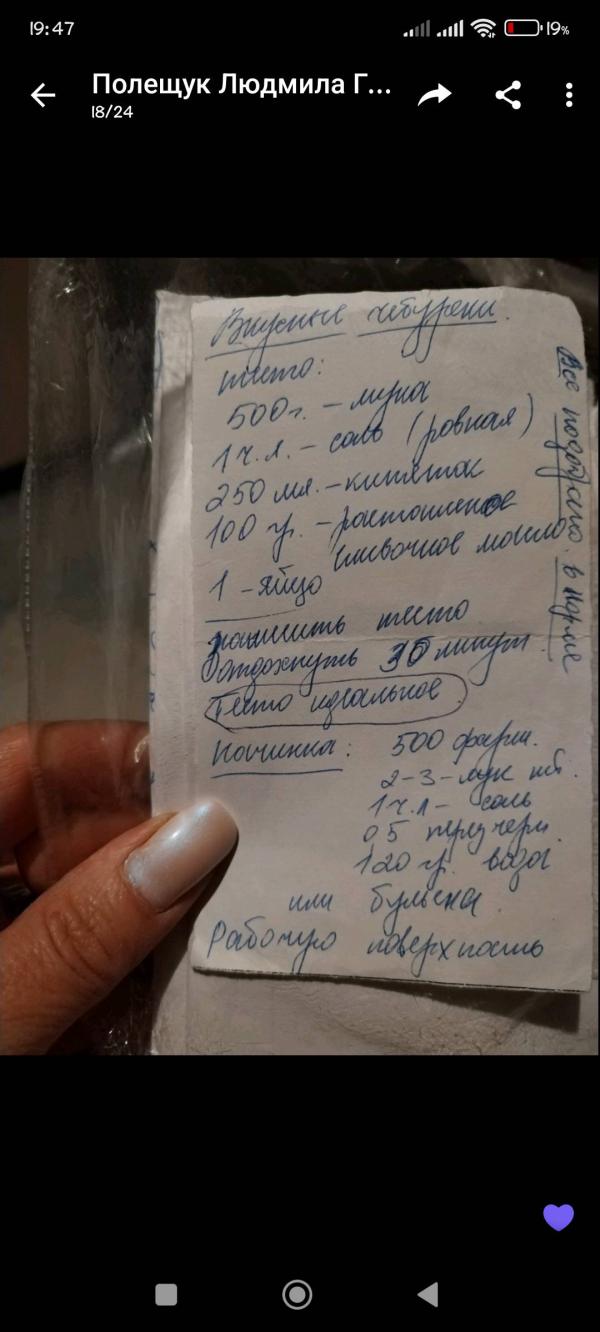 19:47
19%
Полещук Людмила Г...
18/24
Вкусные чебуреки.
тесто:
500 г. - мука
1 ч.л. - соль (ровная)
250 мл. - кипяток
100 гр. - растопленое
сливочное масло
1 - яйцо
тесто
отдохнуть 30 минут.
Тесто идеальное
Начинка: 500 фарш.
2-3 - лук шт.
1 ч.л - соль
05 перц черн.
120 гр. вода
или бульона.
Рабочую поверхность
Всё в норме